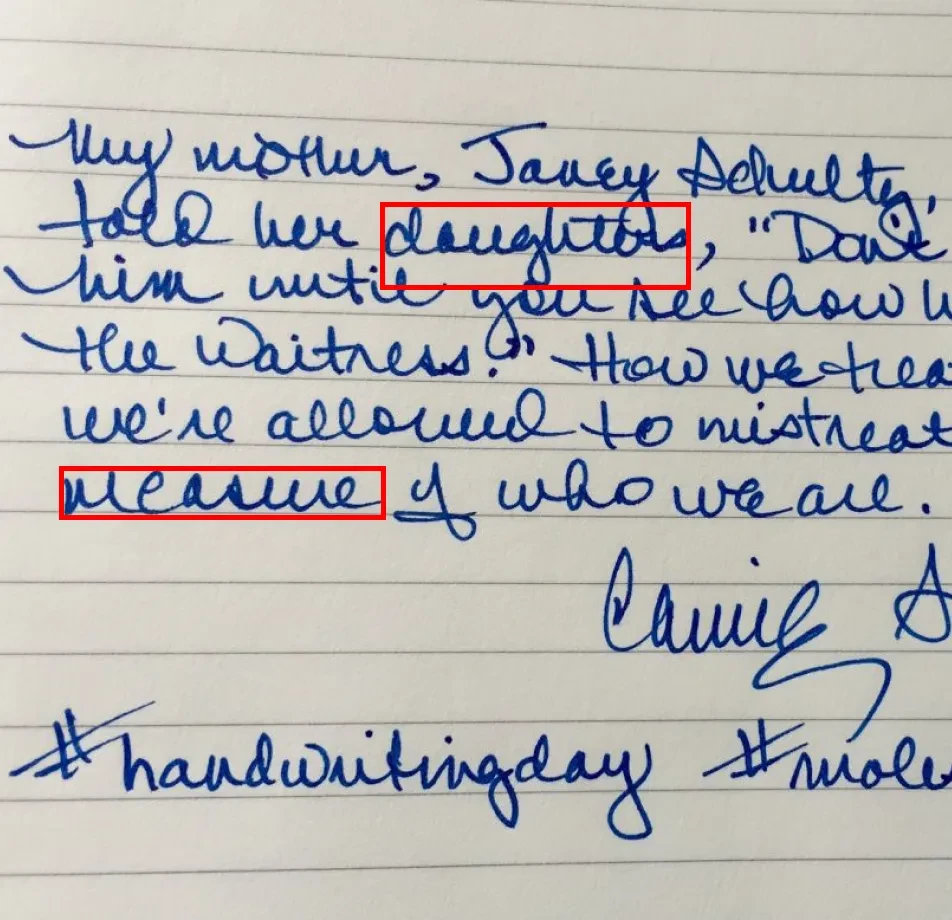 My mother, Janey Schultz,
told her daughters, "Don't
him until you see how
the waitress." How we treat
we're allowed to mistreat
measure of who we are.
#handwritingday